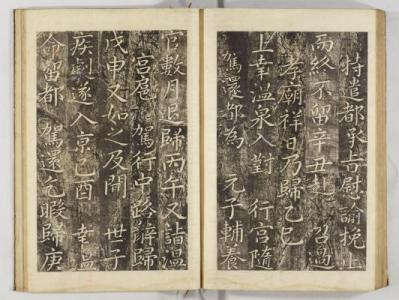 特遣都承旨慰諭挽止
而終不留辛丑赴 召過
孝廟祥日乃歸乙巳
上幸溫泉入對 行宮隨
駕還都為 元子輔養
官數月退歸丙午又詣溫
宮扈 駕行中路辭歸
戊申又如之及開 世子
疾劇遂入京己酉 幸溫
命留都 駕還乞暇歸庚